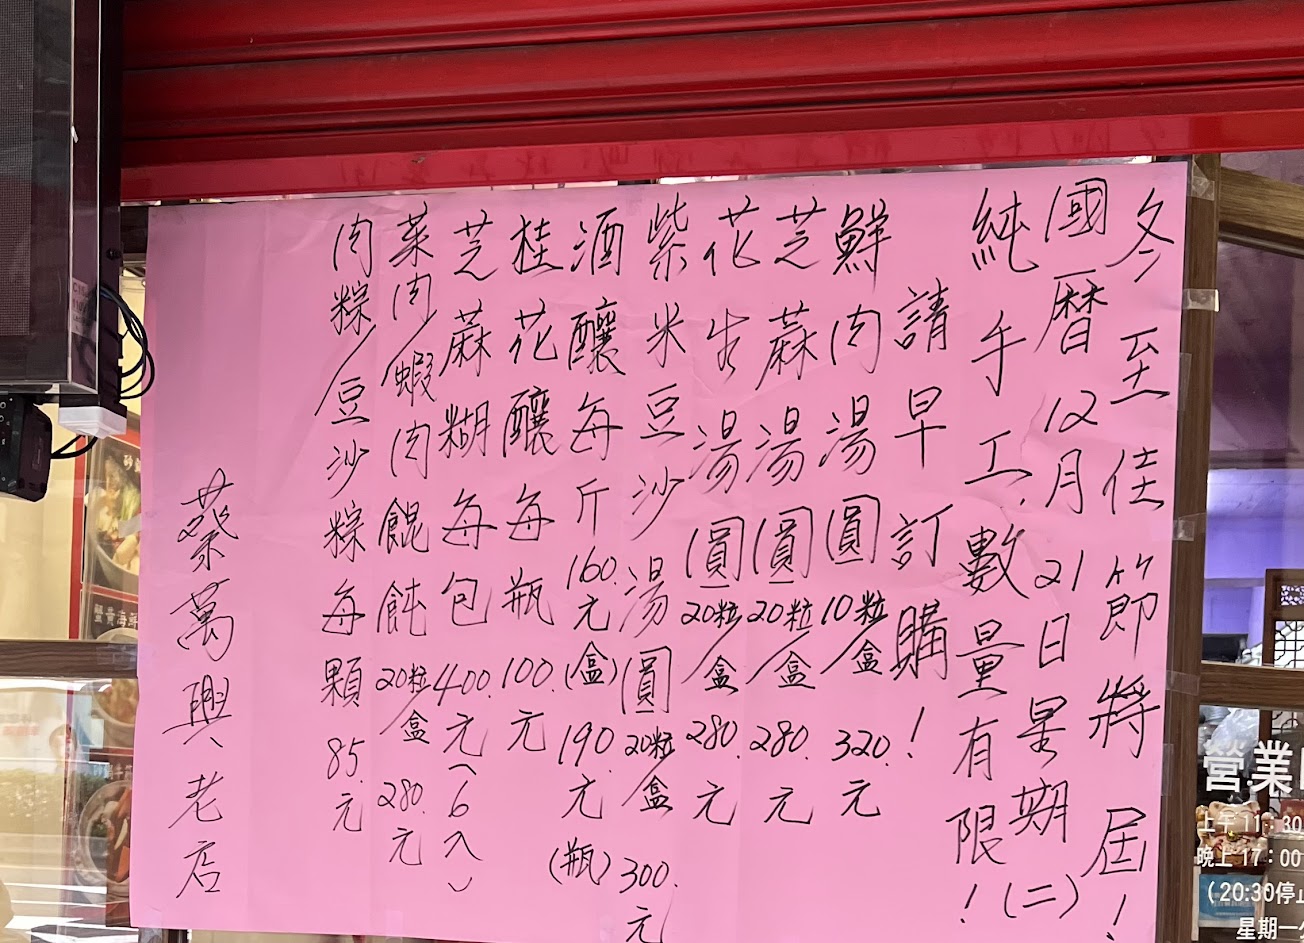 冬至佳節將屆!
國曆12月21日星期(二)
純手工,數量有限!
請早訂購!
鮮肉湯圓10粒/盒320.元
芝蔴湯圓20粒/盒280.元
花生湯圓20粒/盒280.元
紫米豆沙湯圓20粒/盒300.元
酒釀每斤160.元(盒)190.元(瓶)
桂花釀每瓶100.元
芝蔴糊每包400.元(6入)
菜肉/蝦肉餛飩20粒/盒280.元
肉粽/豆沙粽每顆85.元
蔡萬興老店
營業
上午11:30
晚上17:00
(20:30停止
星期一